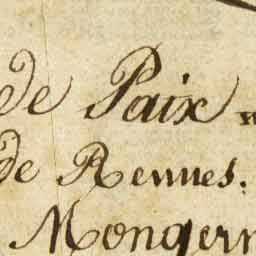 de Paix
de Rennes.
Mongerm